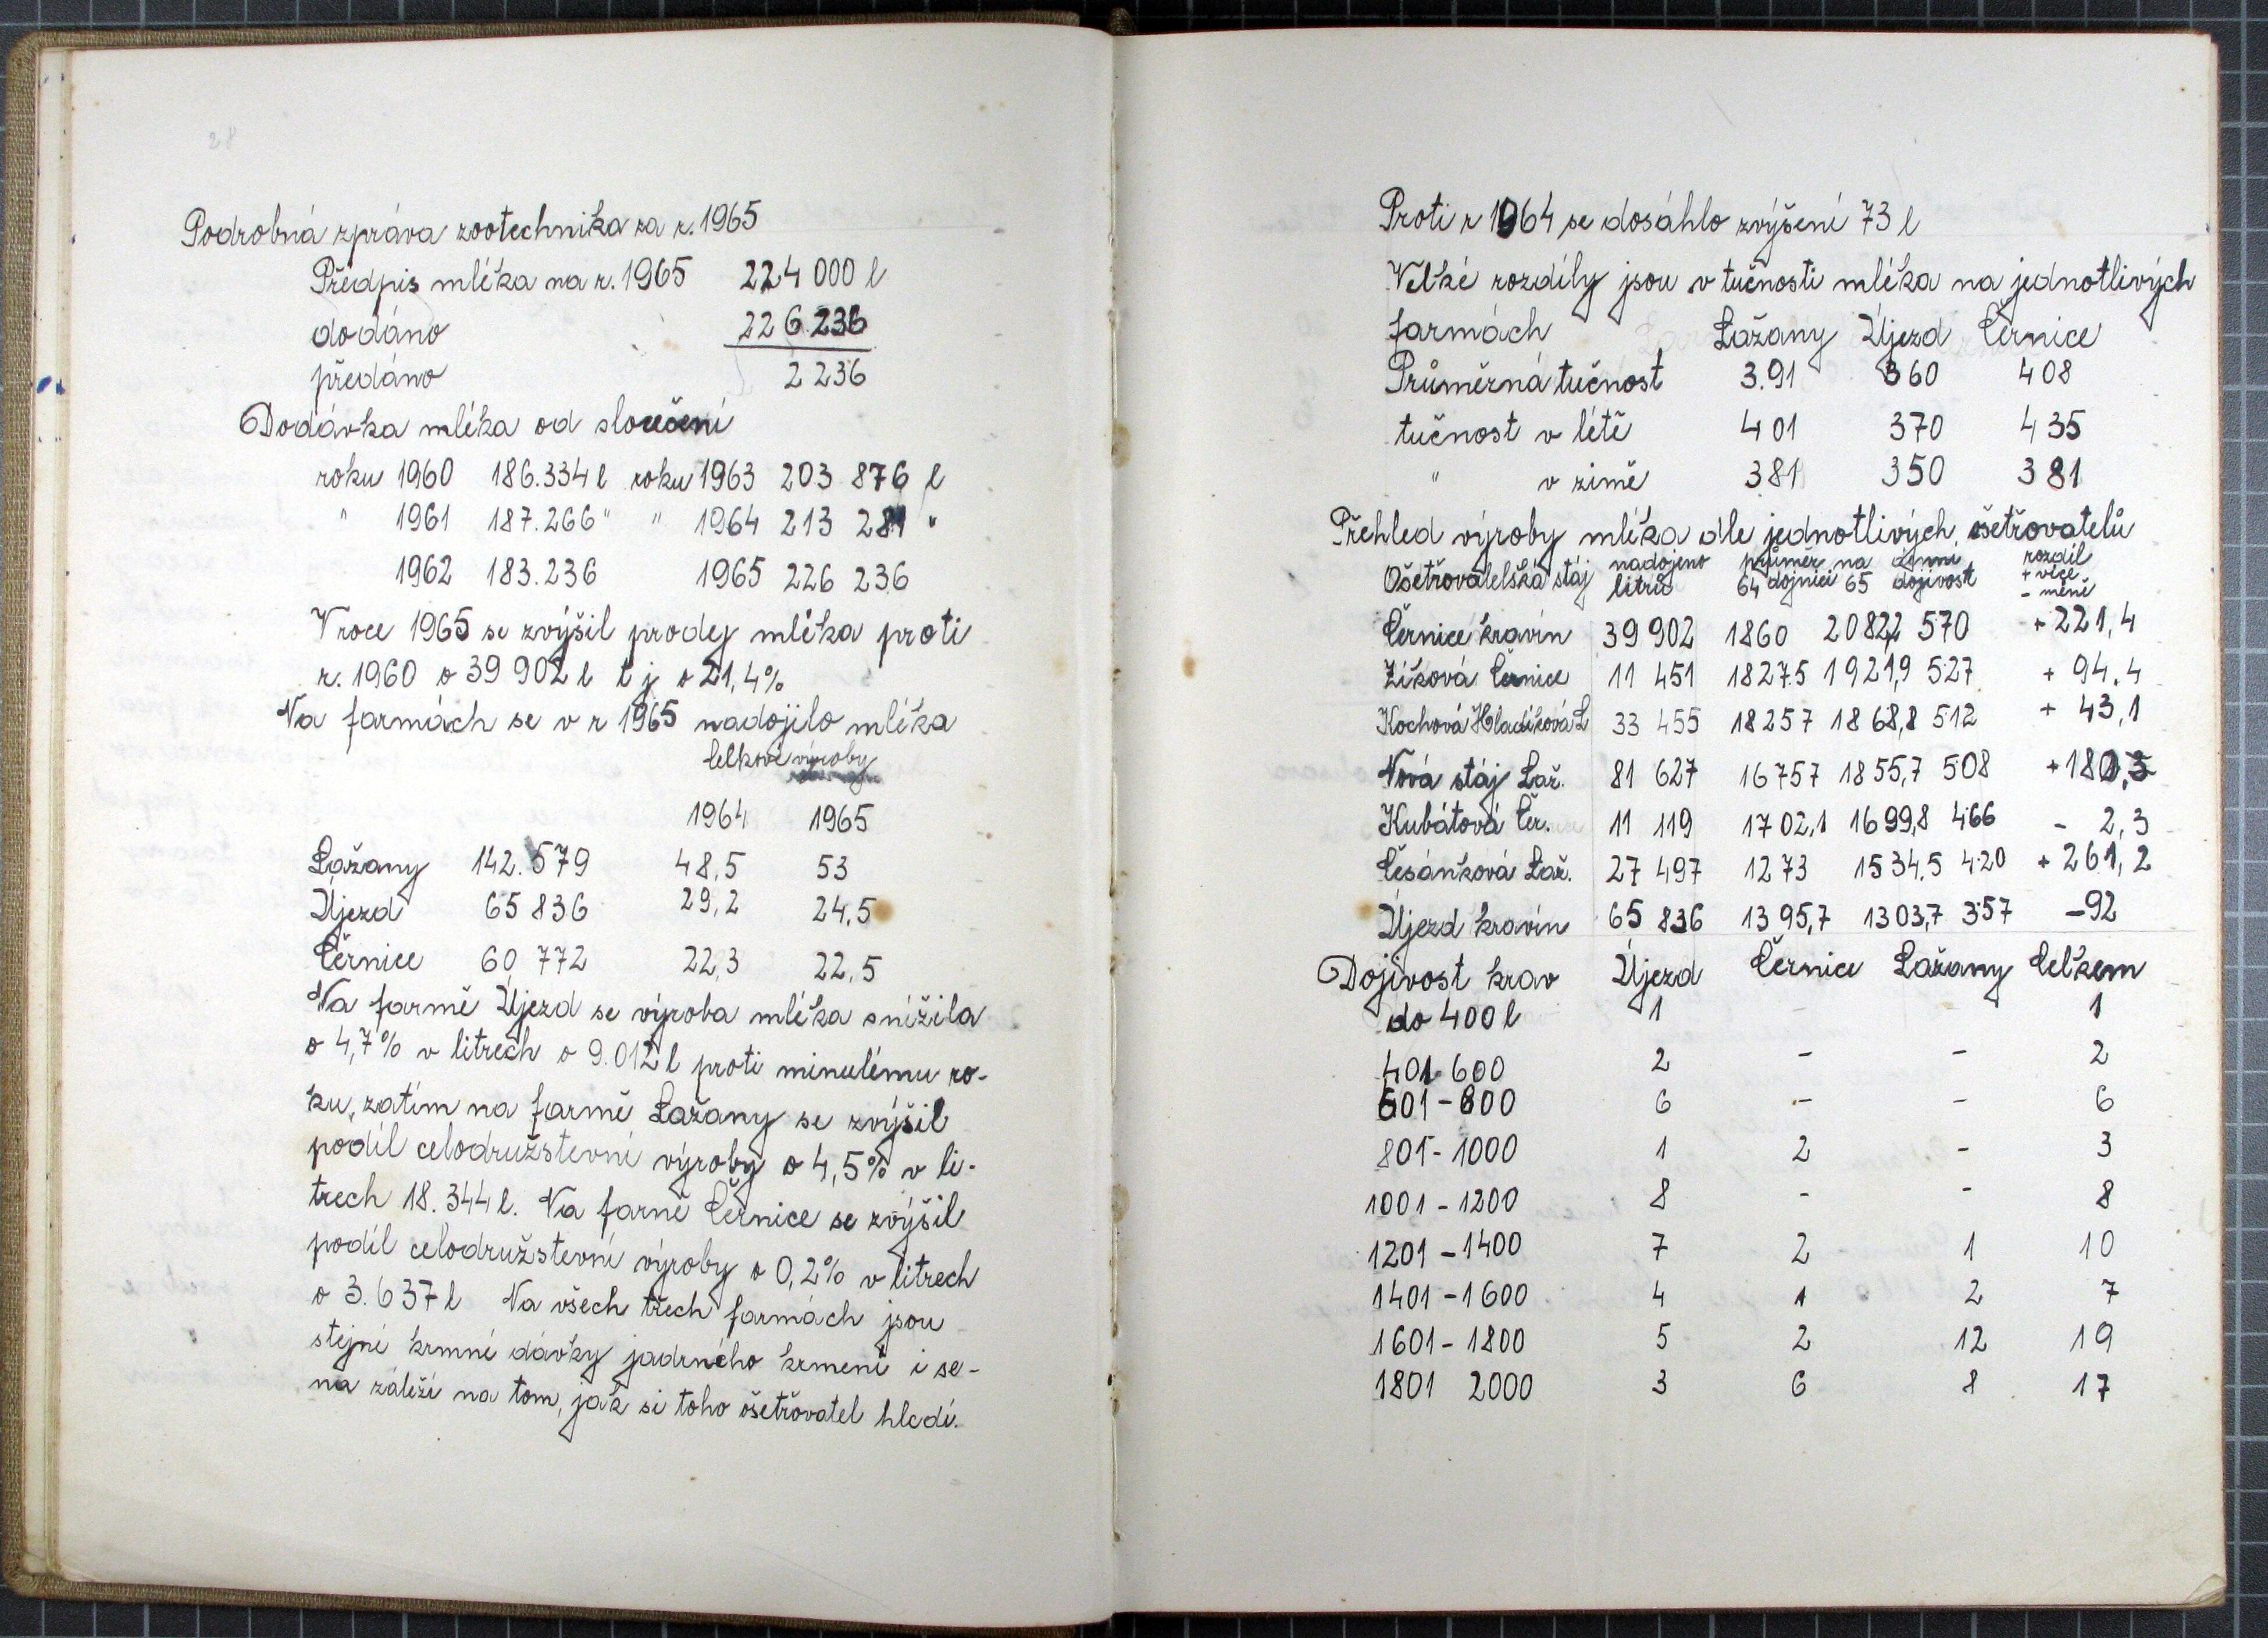 28
Podrobná zpráva zootechnika za r. 1965
Předpis mléka na r. 1965 224 000 l
dodáno 226.236
předáno 2 236
Dodávka mléka od sloučení
roku 1960 186.334 l roku 1963 203 876 l
" 1961 187.266 " " 1964 213 281 "
1962 183.236 1965 226 236
V roce 1965 se zvýšil prodej mléka proti
r. 1960 o 39 902 l t j o 21,4%
Na farmách se v r 1965 nadojilo mléka
celkové výroby
1964 1965
Lažany 142.579 48,5 53
Újezd 65 836 29,2 24,5
Černice 60 772 22,3 22,5
Na farmě Újezd se výroba mléka snížila
o 4,7% v litrech o 9.012 l proti minulému ro-
ku, zatím na farmě Lažany se zvýšil
podíl celodružstevní výroby o 4,5% v li-
trech 18.344 l. Na farně Černice se zvýšil
podíl celodružstevní výroby o 0,2% v litrech
o 3.637 l Na všech třech farmách jsou
stejné krmné dávky jadrného krmení i se-
na záleží na tom, jak si toho ošetřovatel hledí.
Proti r 1964 se dosáhlo zvýšení 73 l
Velké rozdíly jsou v tučnosti mléka na jednotlivých
farmách Lažany Újezd Černice
Průměrná tučnost 3.91 360 408
tučnost v létě 401 370 435
" v zimě 381 350 381
Přehled výroby mléka dle jednotlivých ošetřovatelů
Ošetřovatelská stáj nadojeno litrů průměr na 64 dojnici 65 denní dojivost rozdíl + více - méně
Černice kravín 39 902 1860 20822 570 + 221,4
Zíková Černice 11 451 1827.5 1921,9 527 + 94,4
Kochová Hladíková L 33 455 18257 1868,8 512 + 43,1
Nová stáj Laž. 81 627 16757 1855,7 508 + 180,3
Kubátová Čer. 11 119 1702,1 1699,8 466 - 2,3
Česánková Laž. 27 497 1273 1534,5 420 + 261,2
Újezd kravín 65 836 1395,7 1303,7 357 -92
Dojivost krav Újezd Černice Lažany Celkem
do 400 l 1 - - 1
401-600 2 - - 2
601-800 6 - - 6
801-1000 1 2 - 3
1001-1200 8 - - 8
1201-1400 7 2 1 10
1401-1600 4 1 2 7
1601-1800 5 2 12 19
1801 2000 3 6 8 17